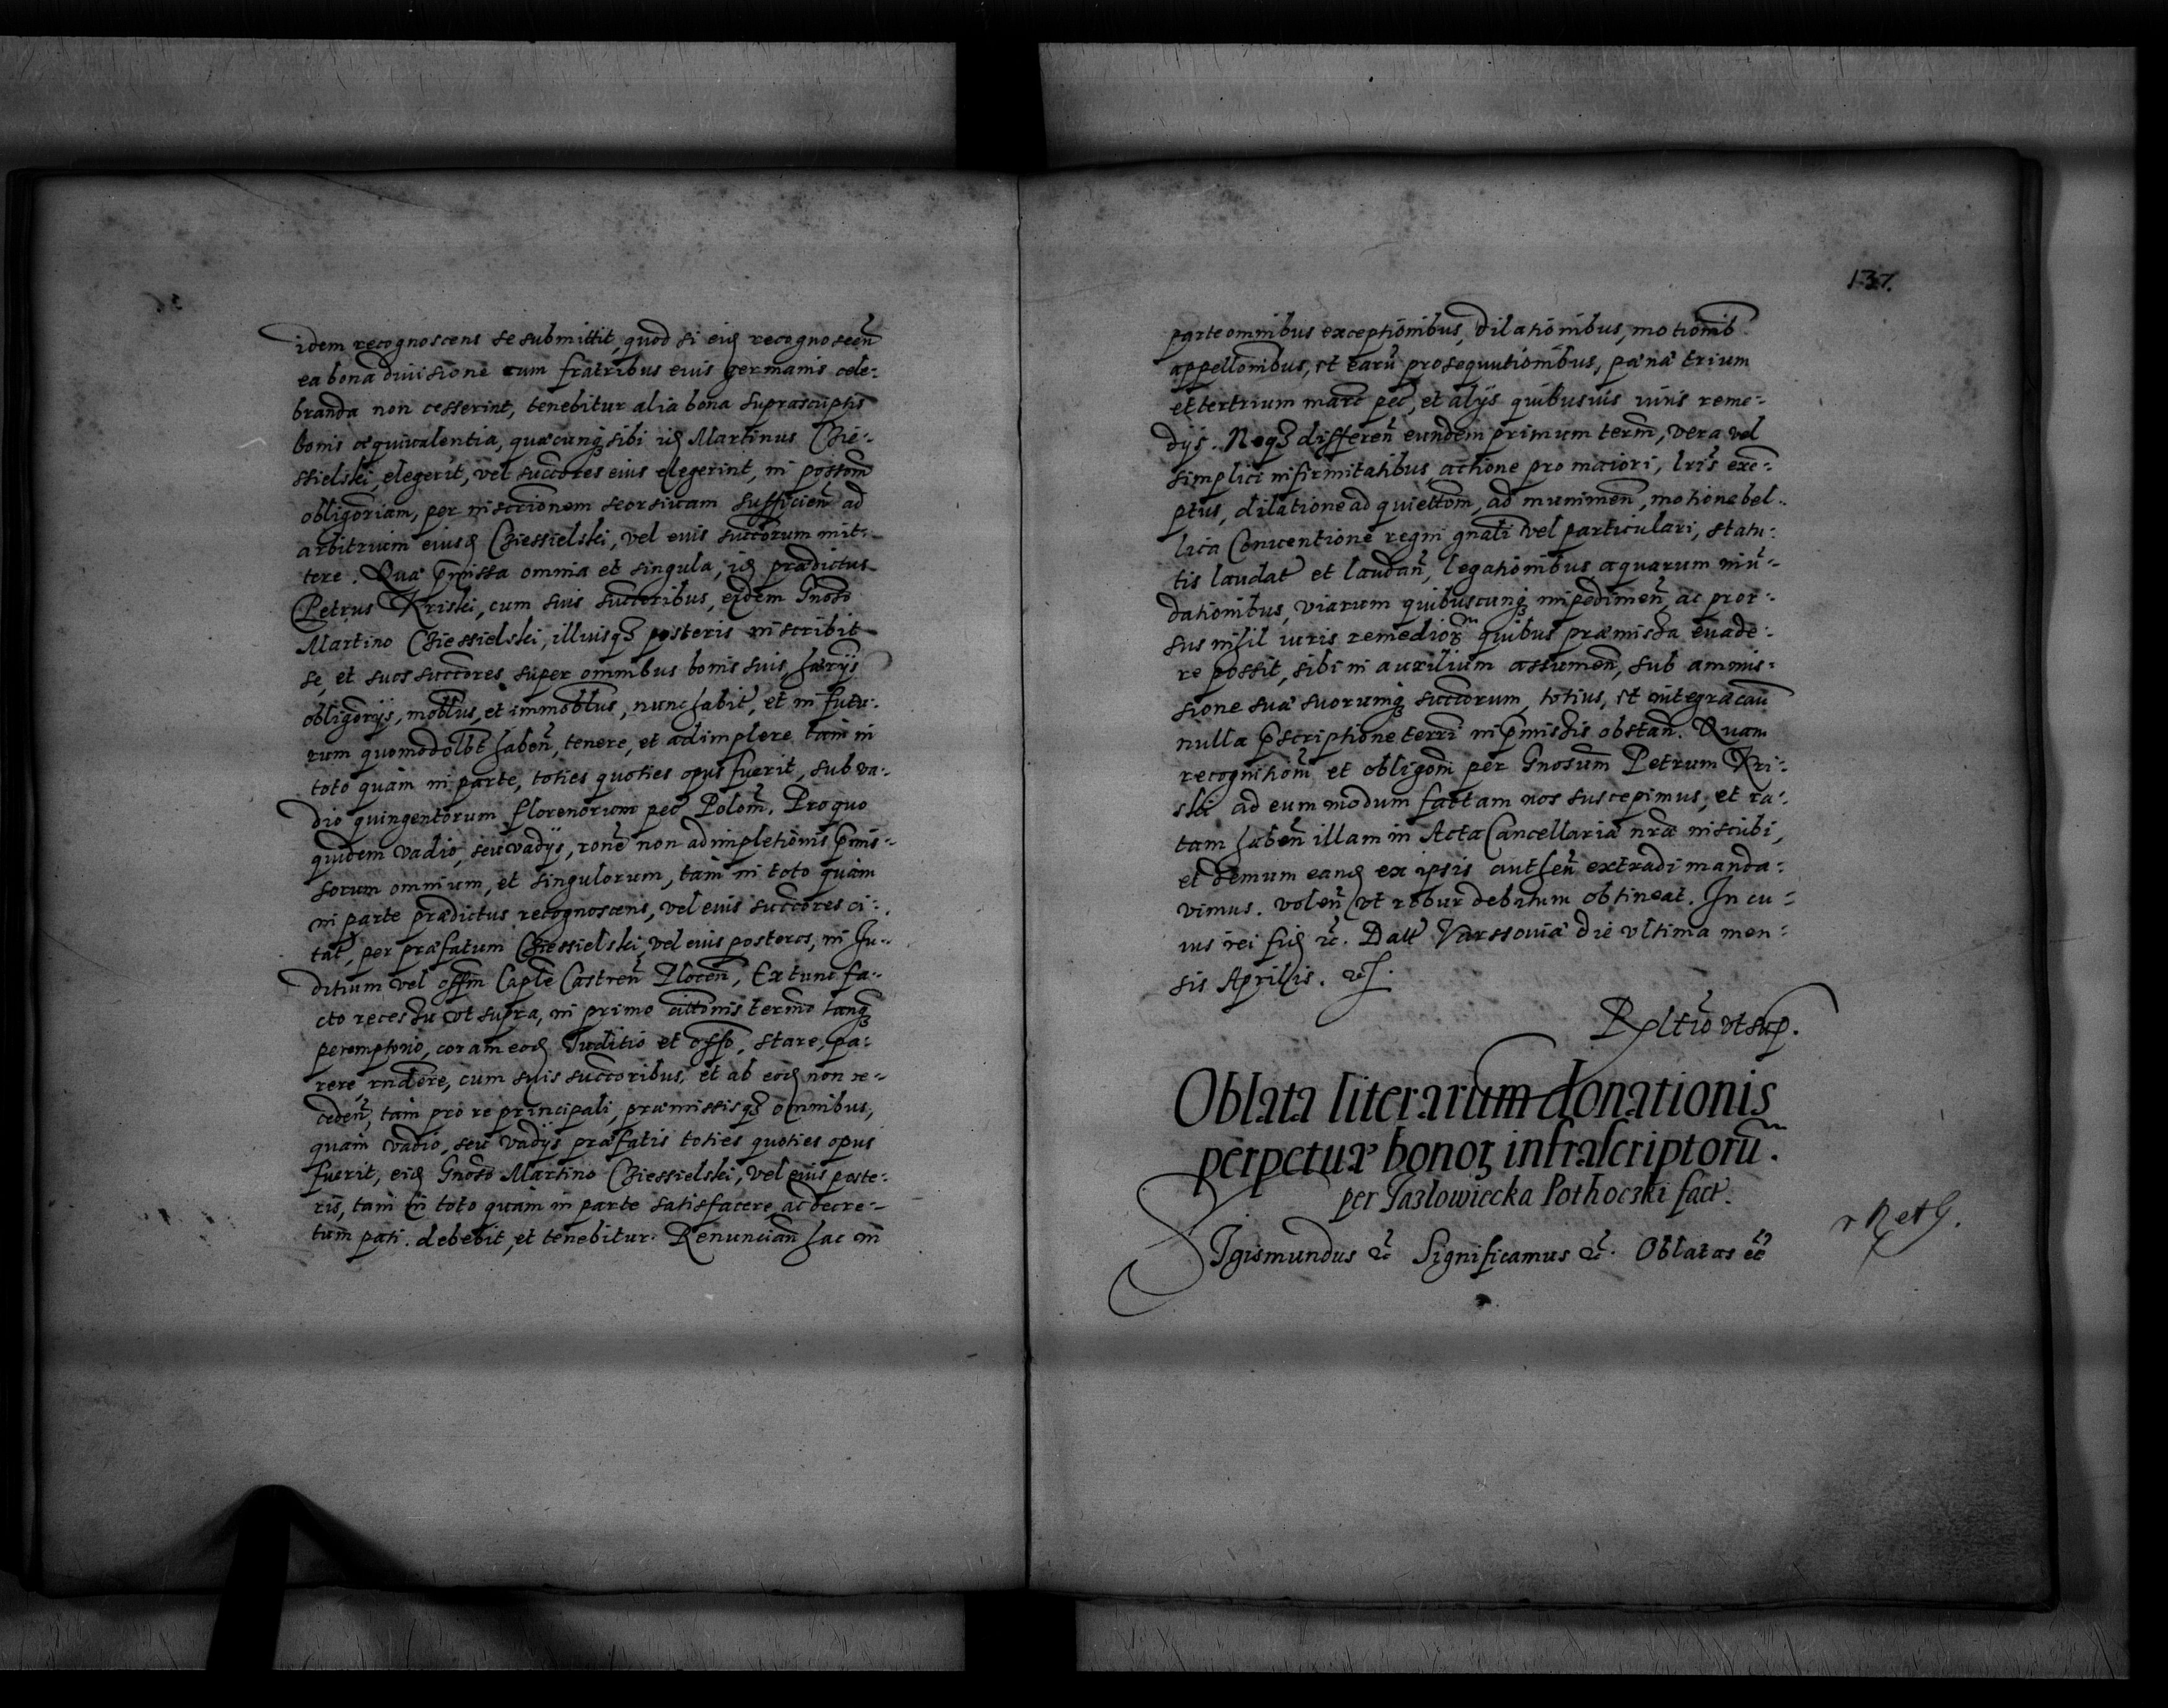 idem recognoscens se submittit, quod si eid recognoscen
ea bona diuisione cum fratribus eius germanis cele-
branda non cesserint, tenebitur alia bona suprascriptis
bonis æquiualentia, quæcunq sibi id Martinus Cie-
ssielski, elegerit, vel succores eius elegerint, in possom
obligoriam, per inscrionem seorsiuam sufficien ad
arbitrium eiusd Ciessielski, vel eius succorum mit-
tere. Quæ pmissa omnia et singula, id prædictus
Petrus Kriski, cum suis succoribus, eidem Gnoso
Martino Ciessielski, illiusq posteris inscribit
se, et suos succores super omnibus bonis suis, hærijs
obligorijs, moblus, et immoblus, nunc habit, et in futu-
rum quomodolbt haben, tenere, et adimplere tam in
toto quàm in parte, toties quoties opus fuerit, sub va-
dio quingentorum florenorum pec Polom. Pro quo
quidem vadio, seu vadijs, rone non adimpletionis pmis-
sorum omnium, et singulorum, tàm in toto quàm
in parte prædictus recognoscens, vel eius succores ci-
tat, per præfatum Ciessielski, vel eius posteros, in Ju-
ditium vel offm Caple Castren Plocen, Ex tunc fa-
cto recessu vt supra, in primo cittonis termo tanq
peremptorio, coram eod Juditio et offo, stare, pa-
rere rndere, cum suis succoribus, et ab eod non re-
ceden, tàm pro re principali, præmissisq omnibus,
quàm vadio, seu vadijs præfatis toties quoties opus
fuerit, eid Gnoso Martino Ciessielski, vel eius poste-
ris, tam in toto quàm in parte satisfacere ac decre-
tum pati debebit, et tenebitur. Renuncian hac in
137.
parte omnibus exceptionibus, dilationibus, motionib
appellonibus, et earu prosequutionibus, pæna trium
et tertrium marc pec, et alijs quibusuis iuris reme-
dijs. Neq differen eundem primum term, vera vel
simplici infirmitatibus, actione pro maiori, lris exe-
ptius, dilatione ad quiettom, ad munimen, motione bel-
lica Conuentione regni gnali vel particulari, statu-
tis laudat et laudan, legationibus aquarum inu-
dationibus, viarum quibuscunq impedimen, ac pror-
sus nihil iuris remedior quibus præmissa euade-
re possit, sibi in auxilium assumen, sub ammis-
sione suæ suorumq succorum, totius, et integra cau
nulla pscriptione terri in pmissis obstan. Quam
recognitiom et obligom per Gnosum Petrum Kri-
ski ad eum modum factam nos suscepimus, et ra-
tam haben illam in Acta Cancellaria nræ inscribi,
et demum eand ex ipsis authen extradi manda-
vimus. volen vt robur debitum obtineat. In cu-
ius rei fid etc. Datt Varssouiæ die vltima men-
sis Aprilis.
Rltio vt sup.
Oblata literarum donationis
perpetuæ bonor infrascriptoru.
per Jazlowiecka Pothoczki fact.
SJgismundus etc Significamus etc. Oblatas ee